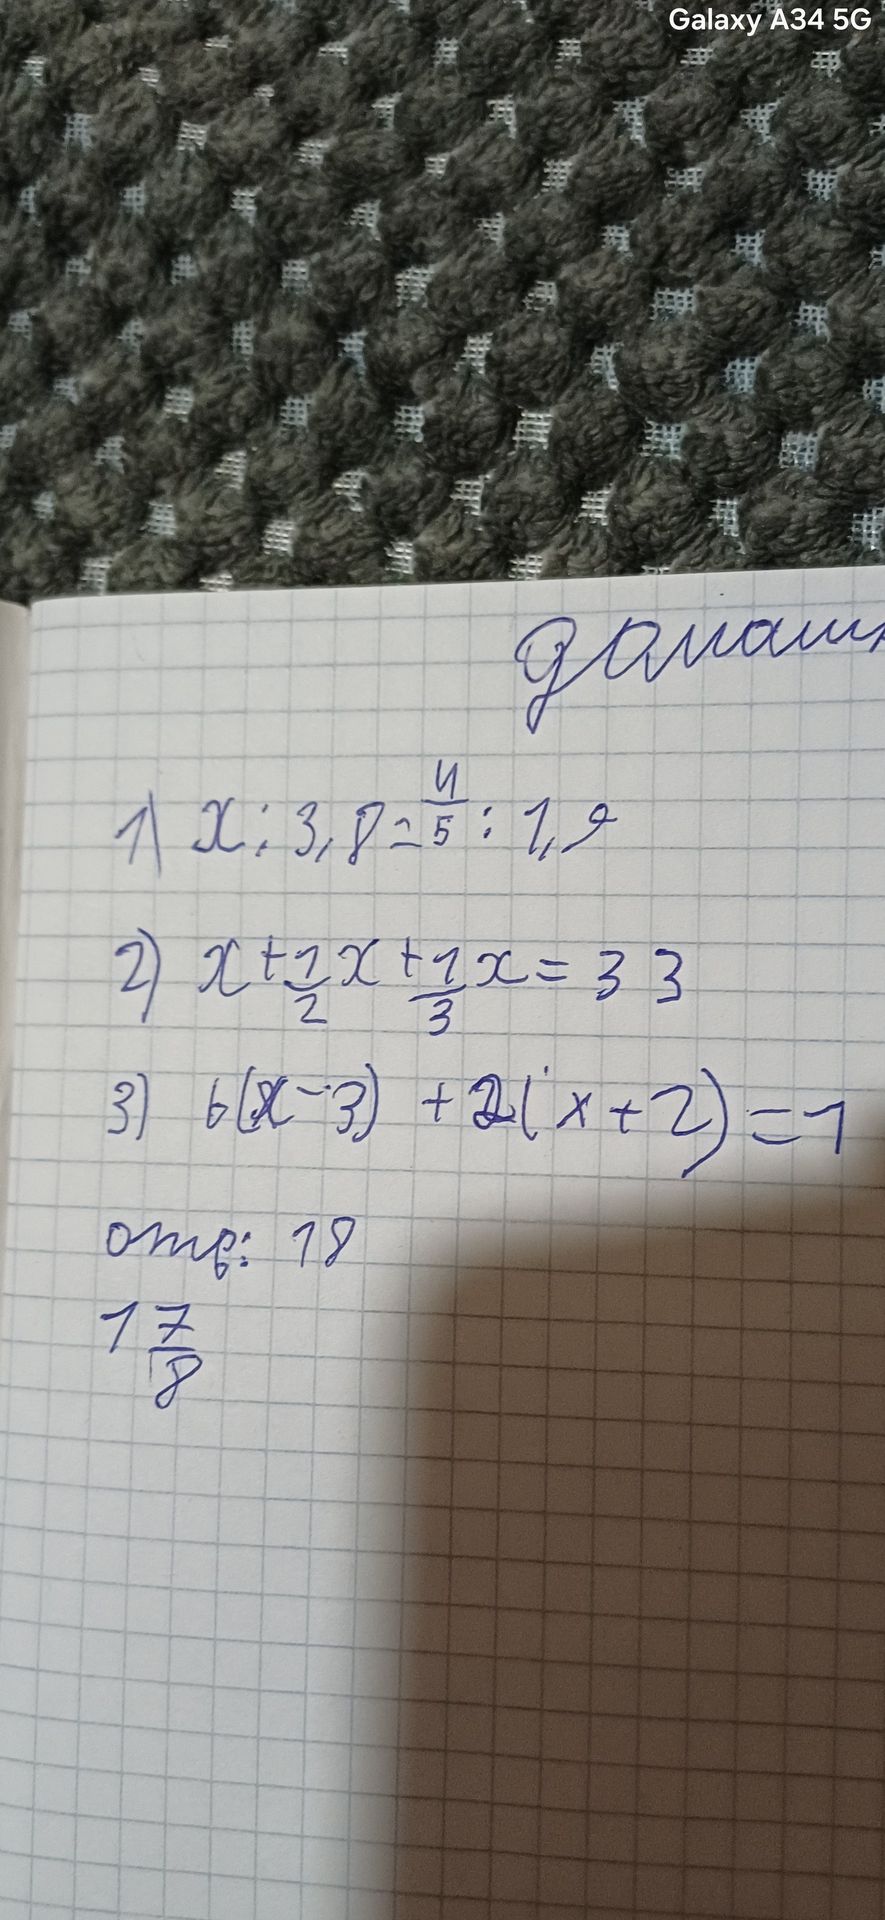 Galaxy A34 5G
домашн
1) x : 3,8 = 4/5 : 1,9
2) x + 1/2 x + 1/3 x = 33
3) 6(x - 3) + 2(x + 2) = 1
отв: 18
1 7/8